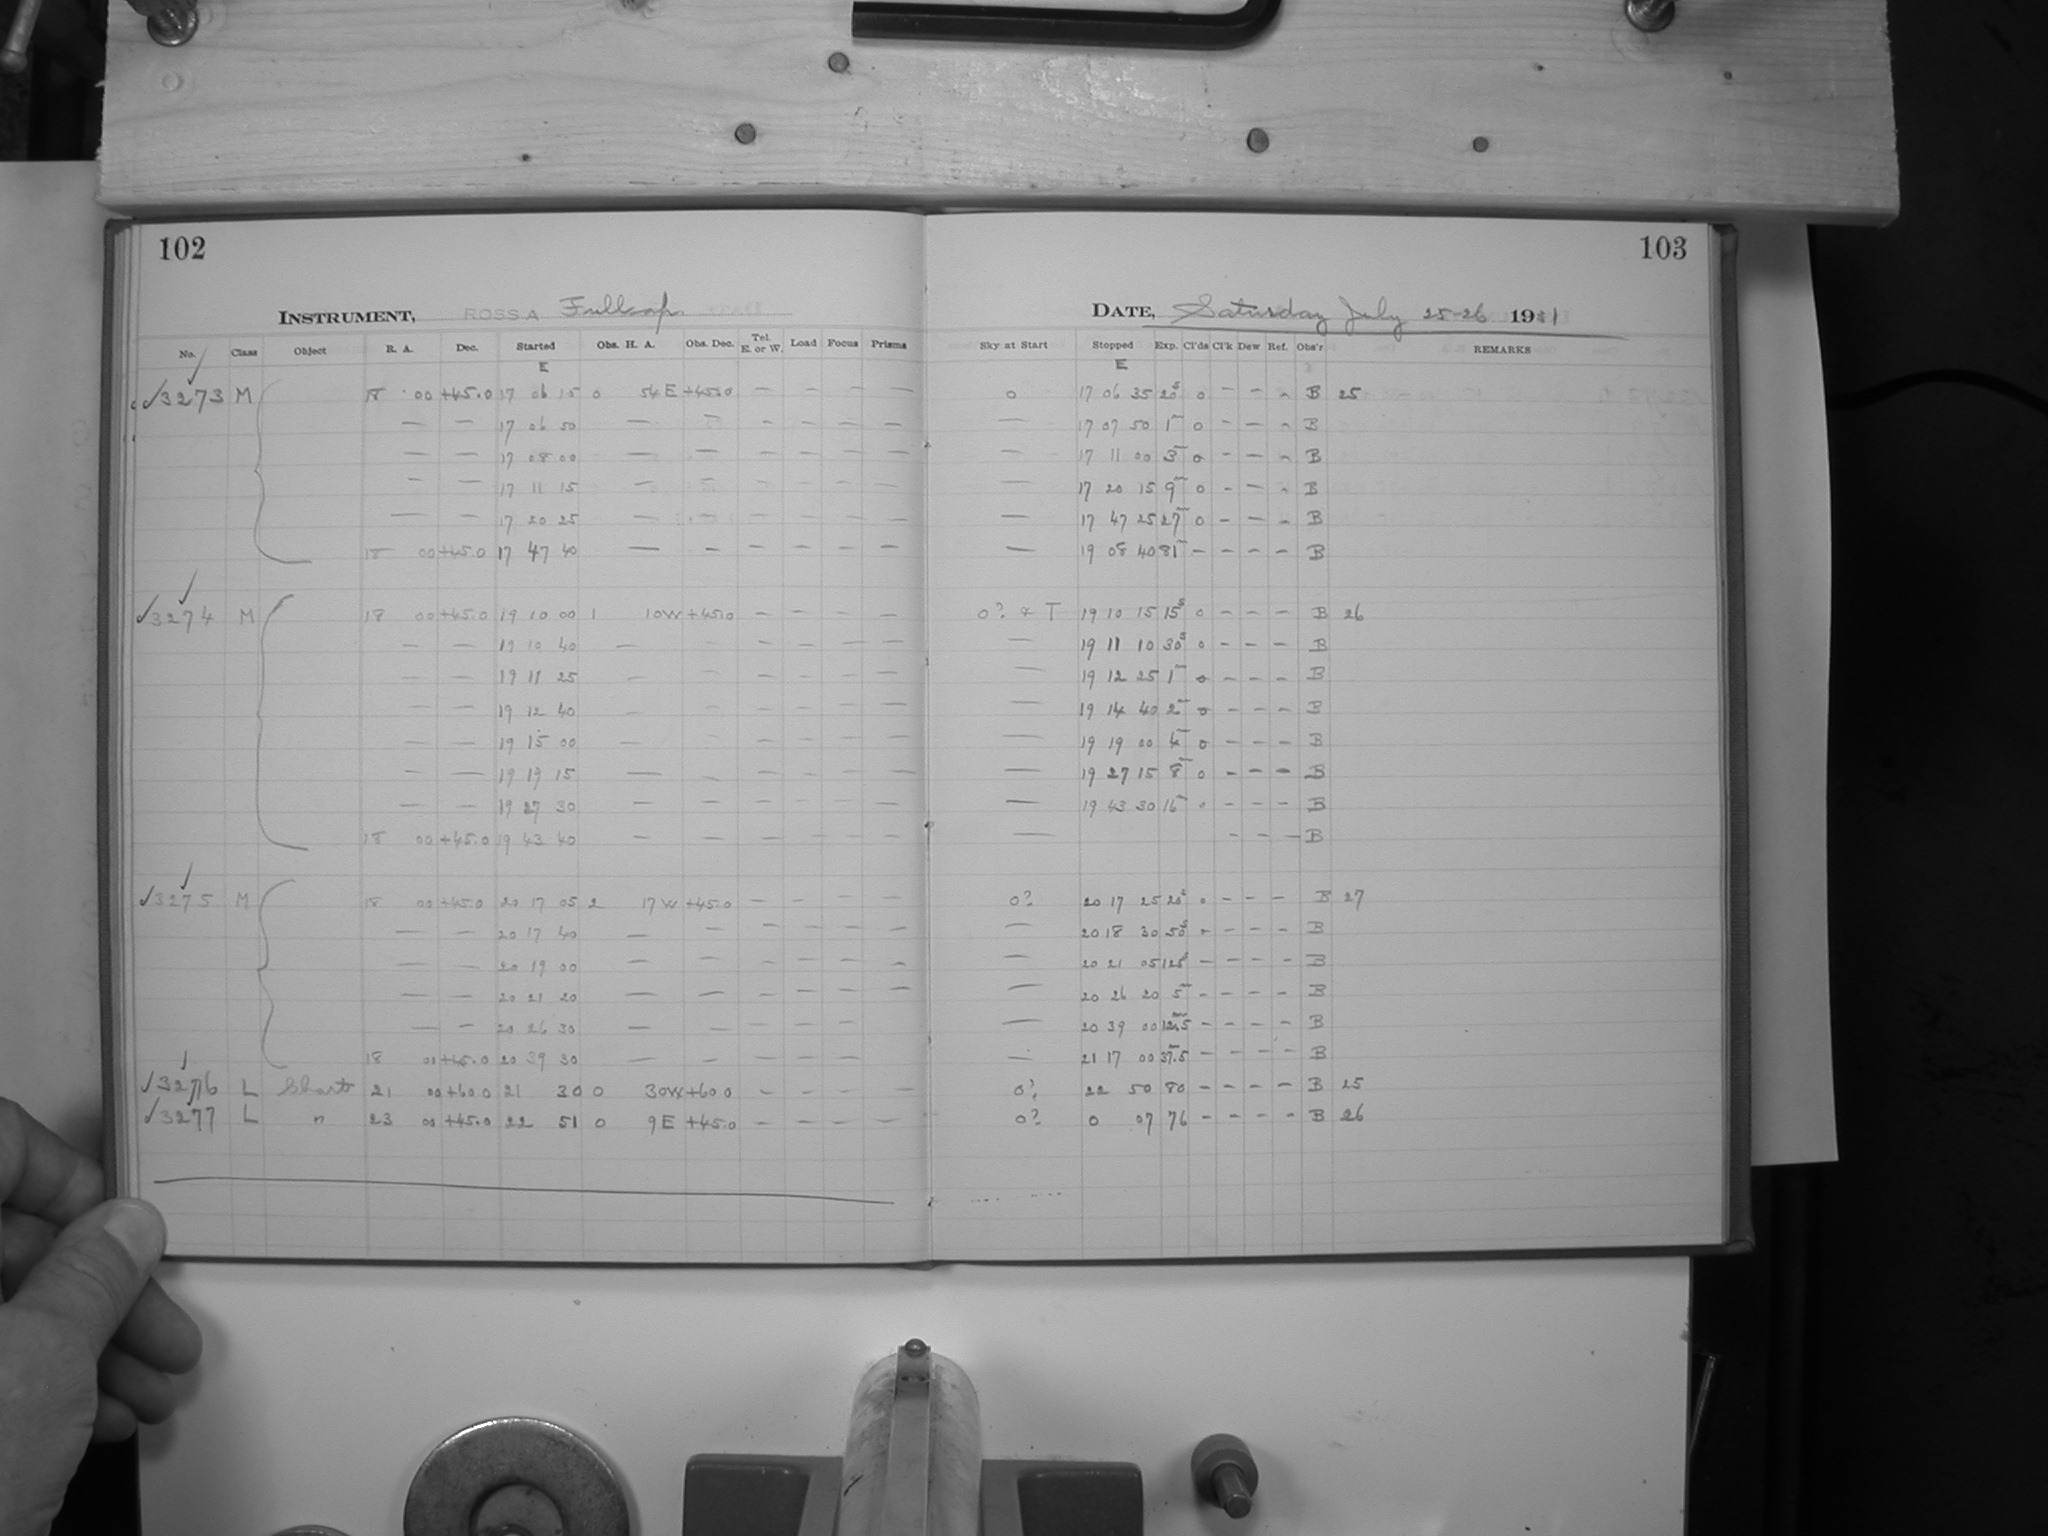 102
103
INSTRUMENT, ROSS A Full ap.
DATE, Saturday July 25-26 1931
No. Class Object R. A. Dec. Started Obs. H. A. Obs. Dec. Tel. E. or W. Load Focus Prisms Sky at Start Stopped Exp. Cl'ds Cl'k Dew Ref. Obs'r REMARKS
E E
✓3273 M 18 00 +45.0 17 06 15 0 54 E +45.0 — — — — 0 17 06 35 20s 0 — — — B 25
— — 17 06 50 — — — — — — — 17 07 50 1m 0 — — — B
— — 17 08 00 — — — — — — — 17 11 00 3m 0 — — — B
— — 17 11 15 — — — — — — — 17 20 15 9m 0 — — — B
— — 17 20 25 — — — — — — — 17 47 25 27m 0 — — — B
18 00 +45.0 17 47 40 — — — — — — — 19 08 40 81m — — — — B
✓3274 M 18 00 +45.0 19 10 00 1 10 W +45.0 — — — — 0? & T 19 10 15 15s 0 — — — B 26
— — 19 10 40 — — — — — — — 19 11 10 30s 0 — — — B
— — 19 11 25 — — — — — — — 19 12 25 1m 0 — — — B
— — 19 12 40 — — — — — — — 19 14 40 2m 0 — — — B
— — 19 15 00 — — — — — — — 19 19 00 4m 0 — — — B
— — 19 19 15 — — — — — — — 19 27 15 8m 0 — — — B
— — 19 27 30 — — — — — — — 19 43 30 16m 0 — — — B
18 00 +45.0 19 43 40 — — — — — — — — — — B
✓3275 M 18 00 +45.0 20 17 05 2 17 W +45.0 — — — — 0? 20 17 25 20s 0 — — — B 27
— — 20 17 40 — — — — — — — 20 18 30 50s — — — — B
— — 20 19 00 — — — — — — — 20 21 05 125s — — — — B
— — 20 21 20 — — — — — — — 20 26 20 5m — — — — B
— — 20 26 30 — — — — — — 20 39 00 12.5m — — — — B
18 00 +45.0 20 39 30 — — — — — — 21 17 00 37.5 — — — — B
✓3276 L Charts 21 00 +60.0 21 30 0 30 W +60.0 — — — — 0? 22 50 80 — — — — B 25
✓3277 L " 23 00 +45.0 22 51 0 9 E +45.0 — — — — 0? 0 07 76 — — — — B 26